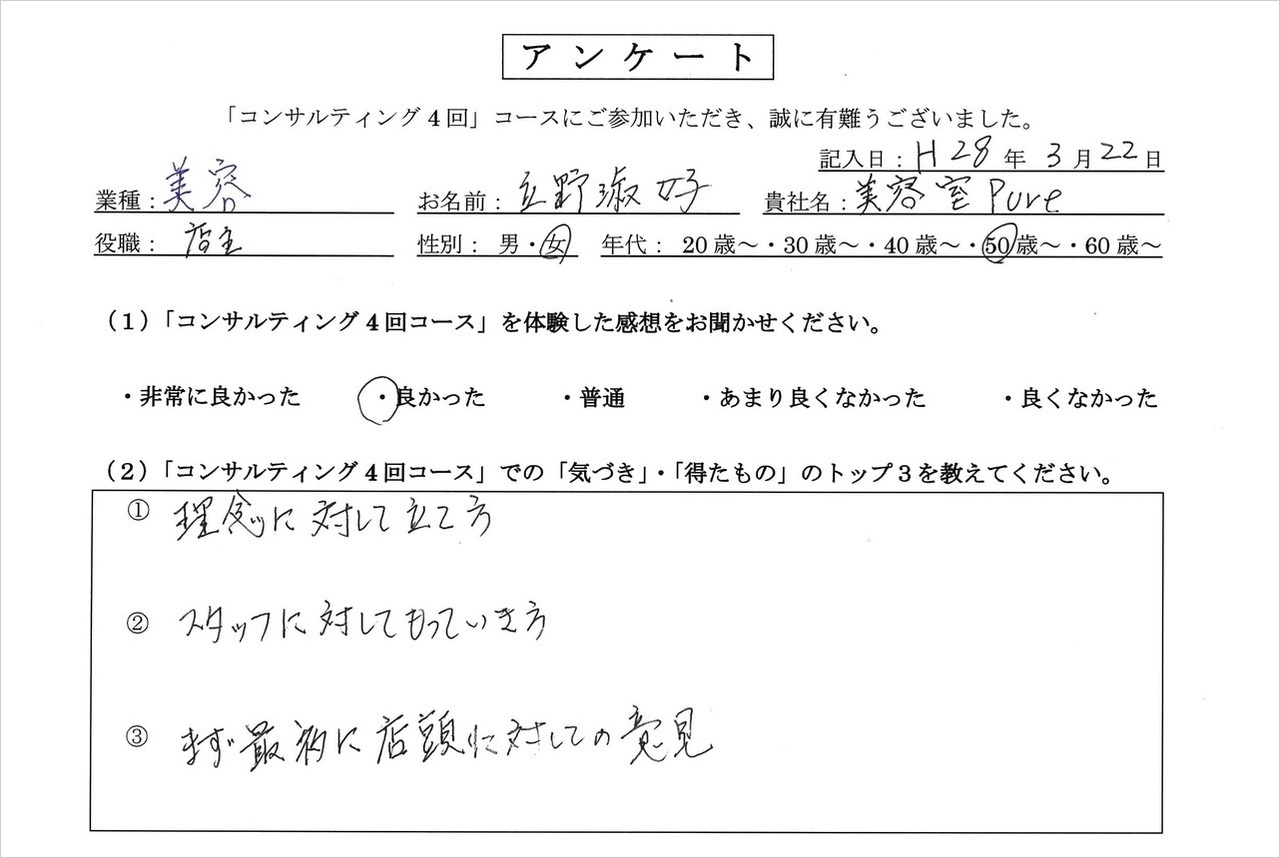 アンケート
「コンサルティング4回」コースにご参加いただき、誠に有難うございました。
記入日：H28年 3月22日
業種：美容 お名前：立野淑好 貴社名：美容室 Pure
役職：店主 性別： 男・女 年代： 20歳～・30歳～・40歳～・50歳～・60歳～
（1）「コンサルティング4回コース」を体験した感想をお聞かせください。
・非常に良かった ・良かった ・普通 ・あまり良くなかった ・良くなかった
（2）「コンサルティング4回コース」での「気づき」・「得たもの」のトップ3を教えてください。
① 理念に対して立て方
② スタッフに対してもっていき方
③ まず最初に店頭に対しての意見